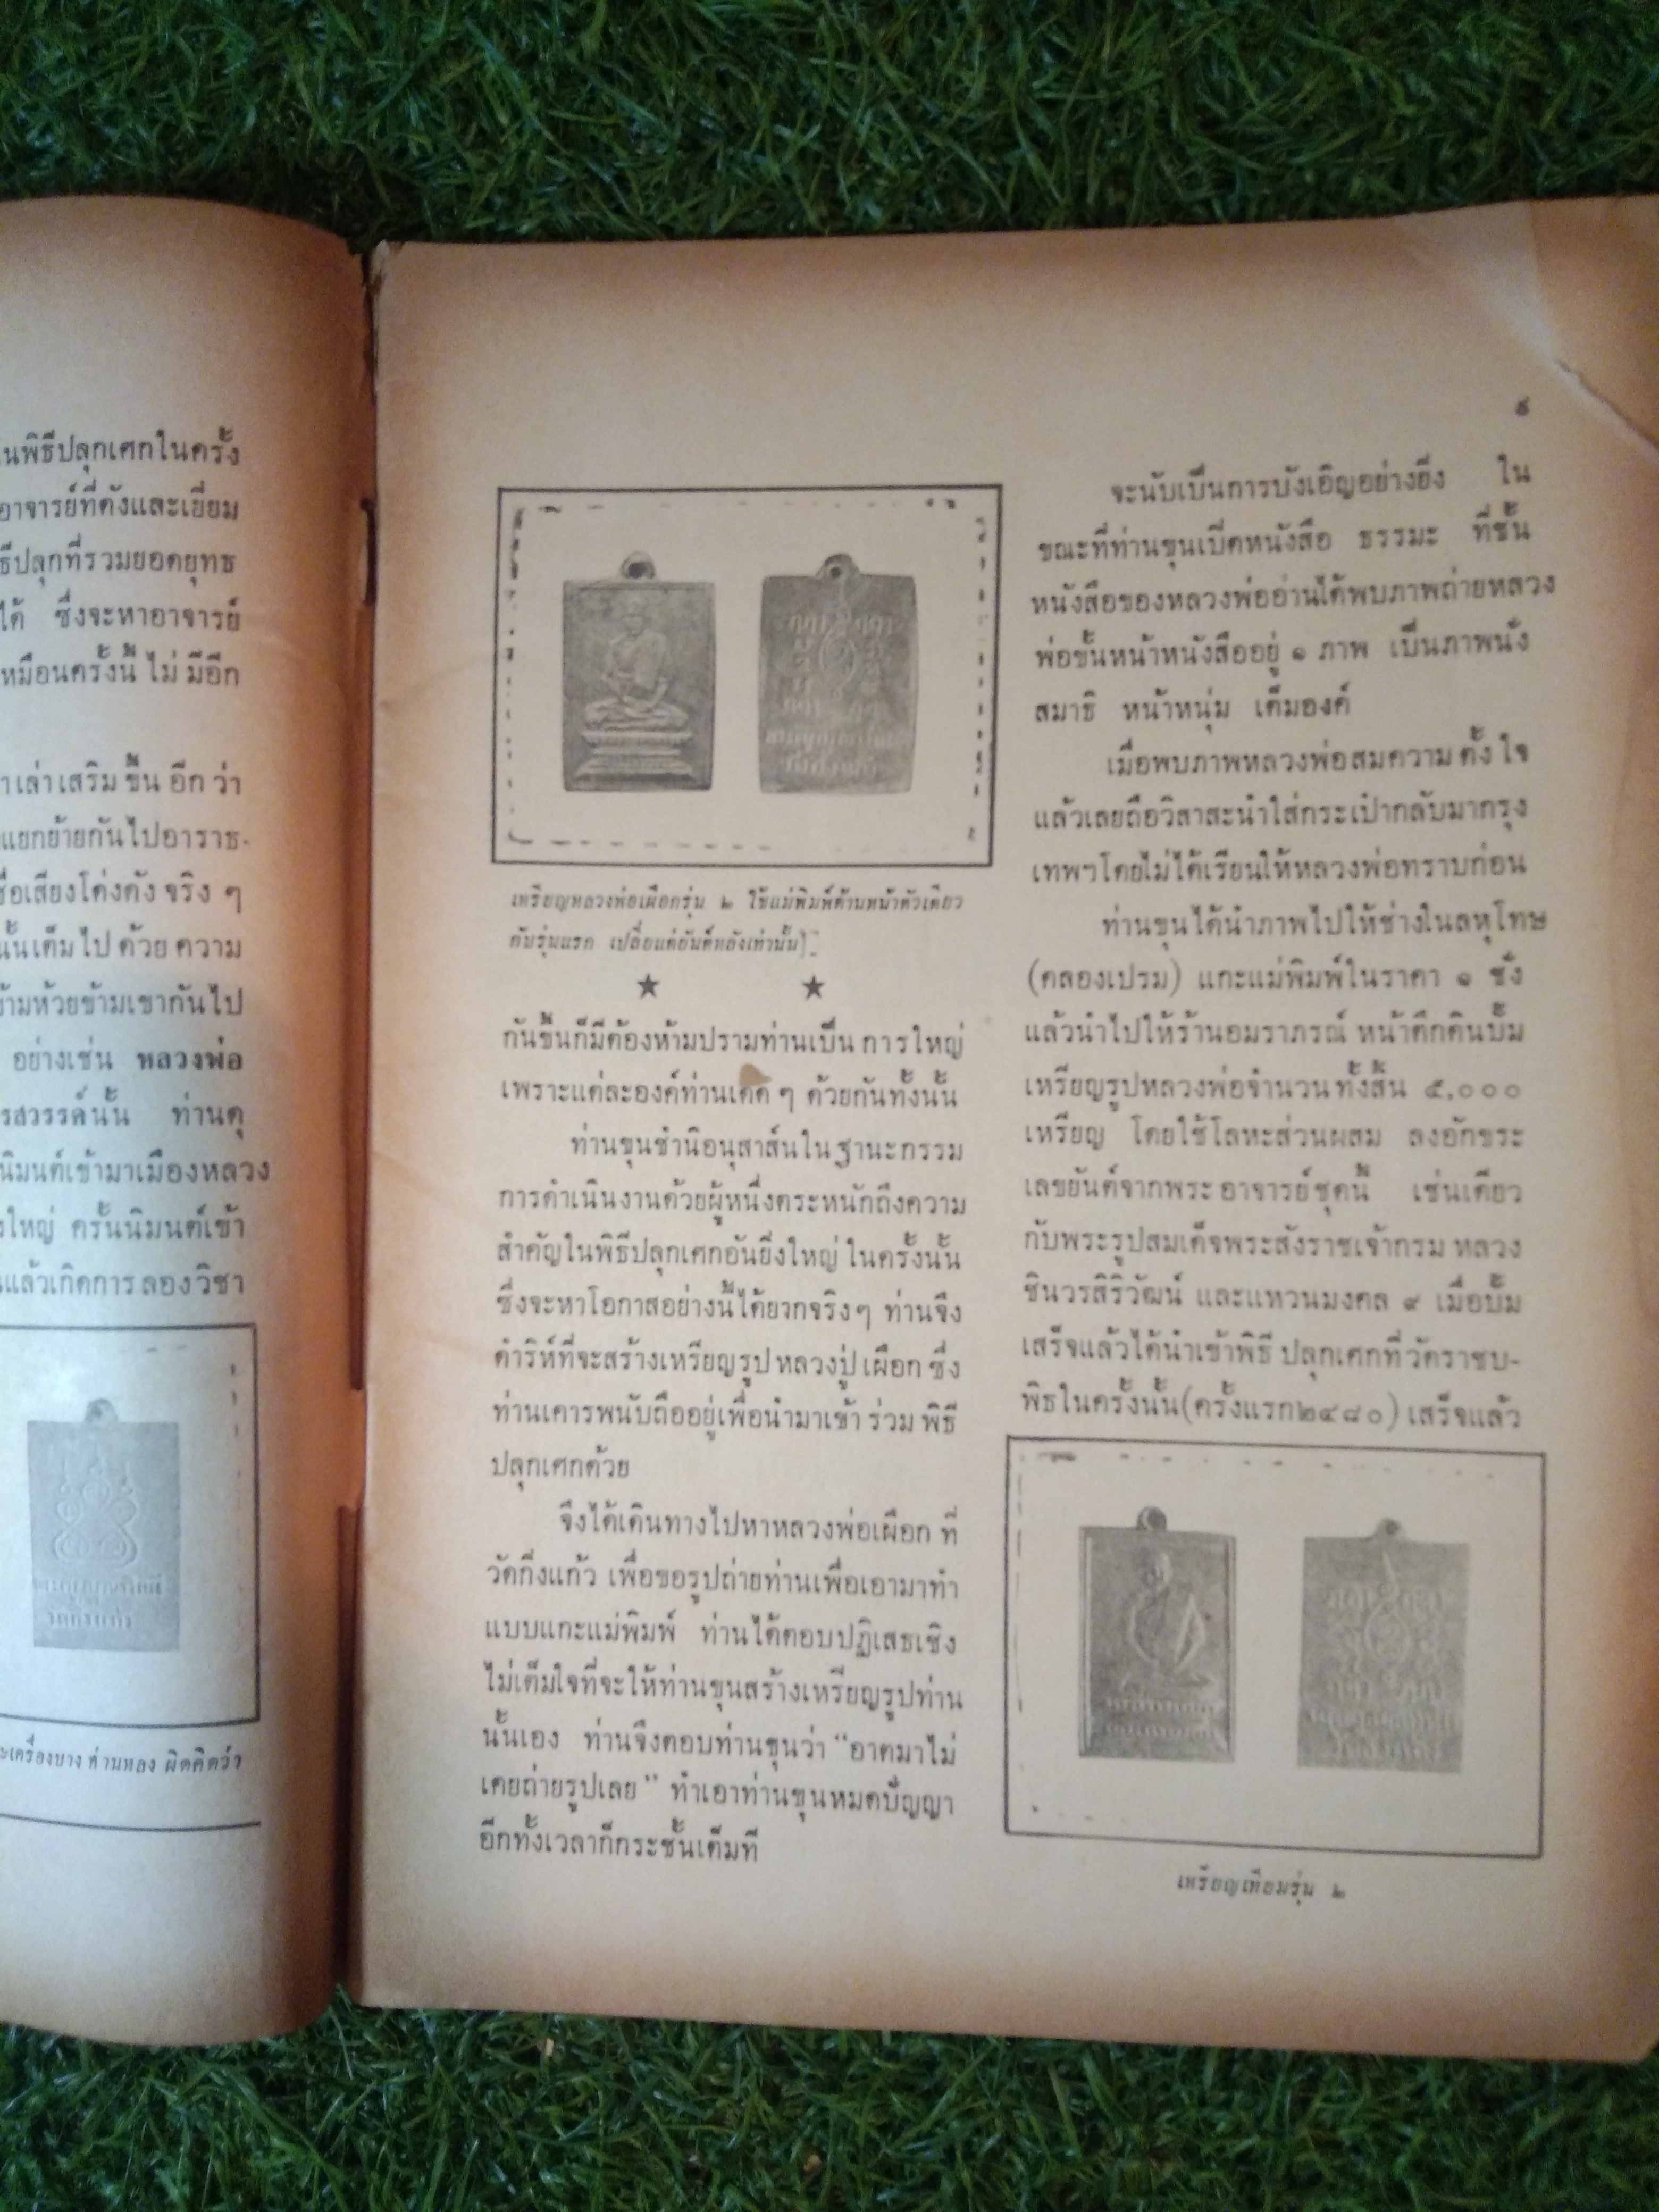 นพิธีปลุกเศกในครั้ง
อาจารย์ที่ดังและเยี่ยม
ธีปลุกที่รวมยอดยุทธ
ได้ ซึ่งจะหาอาจารย์
เหมือนครั้งนี้ ไม่ มีอีก
าเล่าเสริม ขึ้น อีก ว่า
แยกย้ายกันไปอาราธ-
ชื่อเสียงโด่งดัง จริง ๆ
นั้นเต็มไป ด้วย ความ
ข้ามห้วยข้ามเขากันไป
อย่างเช่น หลวงพ่อ
รสวรรค์นั้น ท่านดุ
นิมนต์เข้ามาเมืองหลวง
ใหญ่ ครั้นนิมนต์เข้า
แล้วเกิดการ ลองวิชา
วัดกิ่งแก้ว
ะเครื่องบาง ด้านหลัง ผิดคิดว่า
๙
เหรียญหลวงพ่อเผือกรุ่น ๒ ใช้แม่พิมพ์ด้านหน้าตัวเดียว
กับรุ่นแรก เปลี่ยแต่ยันต์หลังเท่านั้น)
★ ★
กันขึ้นก็มีต้องห้ามปรามท่านเป็น การใหญ่
เพราะแต่ละองค์ท่านเด็ด ๆ ด้วยกันทั้งนั้น
ท่านขุนชำนิอนุสาส์นใน ฐานะกรรม
การดำเนินงานด้วยผู้หนึ่งตระหนักถึงความ
สำคัญในพิธีปลุกเศกอันยิ่งใหญ่ ในครั้งนั้น
ซึ่งจะหาโอกาสอย่างนี้ได้ยากจริงๆ ท่านจึง
ดำริห์ที่จะสร้างเหรียญรูป หลวงปู่ เผือก ซึ่ง
ท่านเคารพนับถืออยู่เพื่อนำมาเข้า ร่วม พิธี
ปลุกเศกด้วย
จึงได้เดินทางไปหาหลวงพ่อเผือก ที่
วัดกิ่งแก้ว เพื่อขอรูปถ่ายท่านเพื่อเอามาทำ
แบบแกะแม่พิมพ์ ท่านได้ตอบปฏิเสธเชิง
ไม่เต็มใจที่จะให้ท่านขุนสร้างเหรียญรูปท่าน
นั้นเอง ท่านจึงตอบท่านขุนว่า "อาตมาไม่
เคยถ่ายรูปเลย" ทำเอาท่านขุนหมดปัญญา
อีกทั้งเวลาก็กระชั้นเต็มที
จะนับเป็นการบังเอิญอย่างยิ่ง ใน
ขณะที่ท่านขุนเปิดหนังสือ ธรรมะ ที่ชั้น
หนังสือของหลวงพ่ออ่านได้พบภาพถ่ายหลวง
พ่อขั้นหน้าหนังสืออยู่ ๑ ภาพ เป็นภาพนั่ง
สมาธิ หน้าหนุ่ม เต็มองค์
เมื่อพบภาพหลวงพ่อสมความ ตั้ง ใจ
แล้วเลยถือวิสาสะนำใส่กระเป๋ากลับมากรุง
เทพฯโดยไม่ได้เรียนให้หลวงพ่อทราบก่อน
ท่านขุนได้นำภาพไปให้ช่างในลหุโทษ
(คลองเปรม) แกะแม่พิมพ์ในราคา ๑ ชั่ง
แล้วนำไปให้ร้านอมราภรณ์ หน้าตึกดินปั๊ม
เหรียญรูปหลวงพ่อจำนวนทั้งสิ้น ๕,๐๐๐
เหรียญ โดยใช้โลหะส่วนผสม ลงอักขระ
เลขยันต์จากพระอาจารย์ชุดนี้ เช่นเดียว
กับพระรูปสมเด็จพระสังราชเจ้ากรม หลวง
ชินวรสิริวัฒน์ และแหวนมงคล ๙ เมื่อปั๊ม
เสร็จแล้วได้นำเข้าพิธี ปลุกเศกที่วัดราชบ-
พิธในครั้งนั้น(ครั้งแรก๒๔๘๐) เสร็จแล้ว
เหรียญเทียมรุ่น ๒